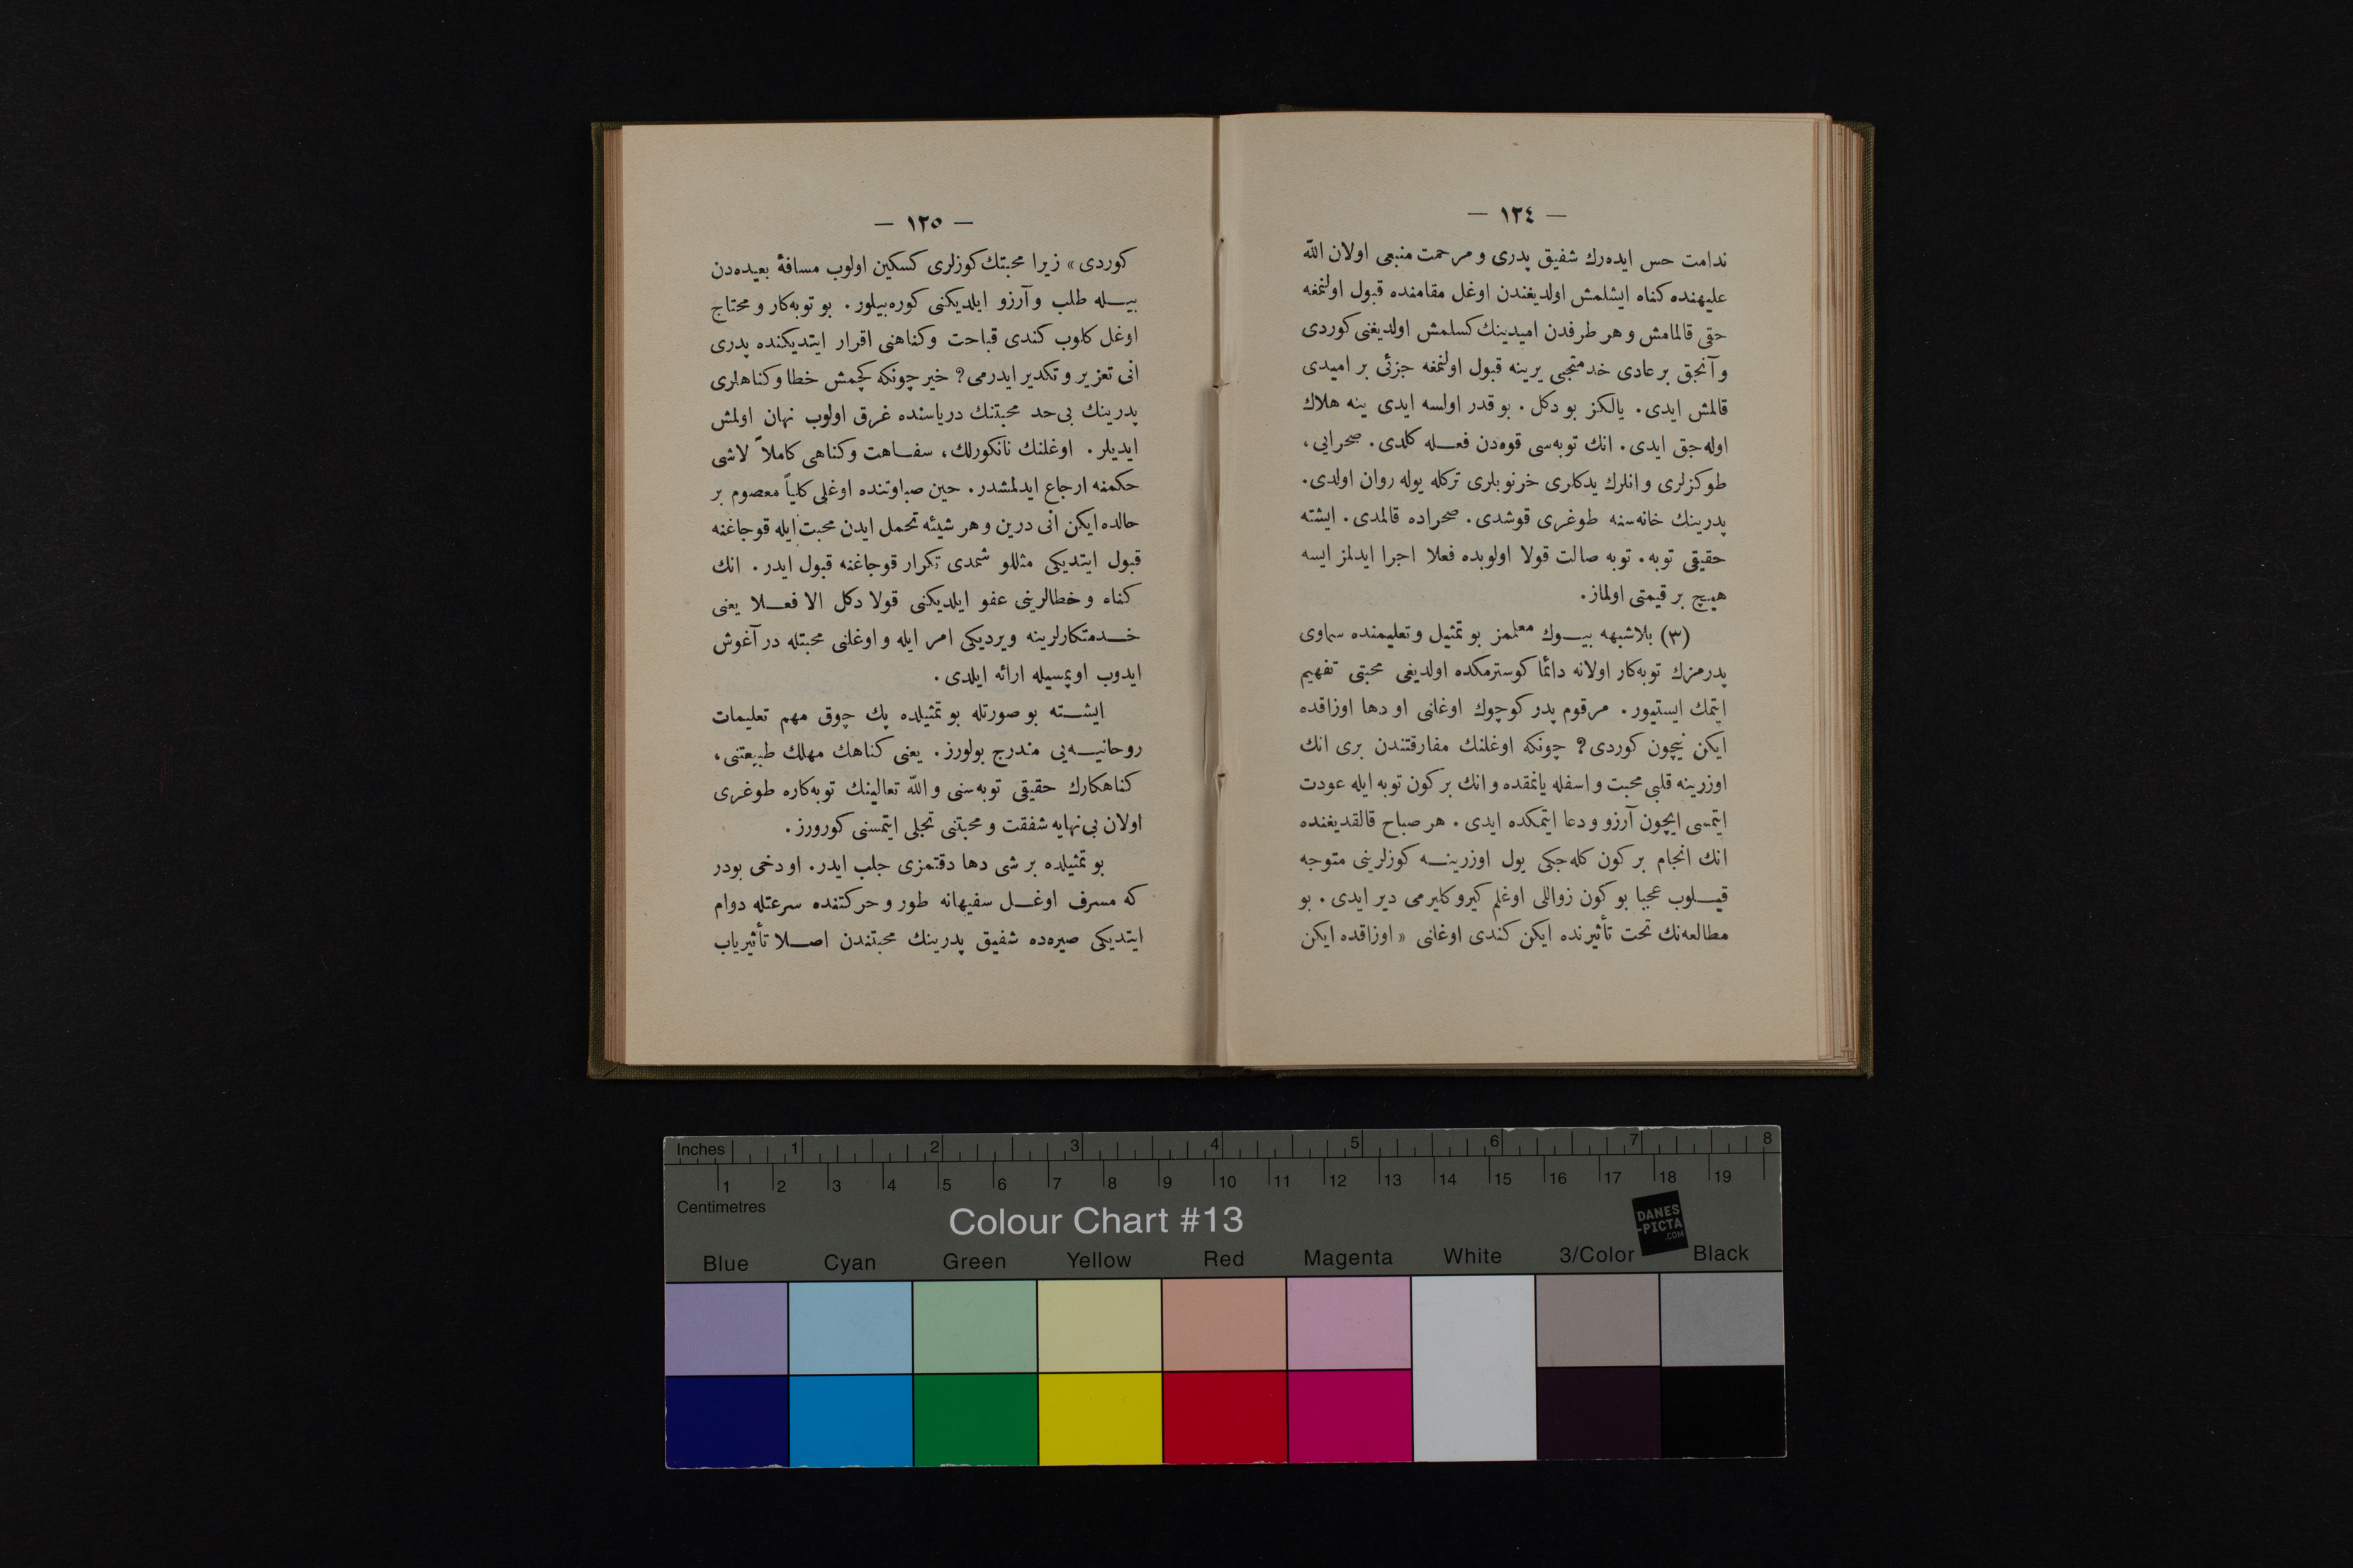 — ١٢٤ —
ندامت حس ايده‌رك شفيق پدرى و مرحمت منبعى اولان الله
عليهنده كناه ايشلمش اولديغندن اوغل مقامنده قبول اولنمغه
حقى قالمامش و هر طرفدن اميدينك كسلمش اولديغنى كوردى
و آنجق بر عادى خدمتجى يرينه قبول اولنمغه جزئى بر اميدى
قالمش ايدى. يالكز بو دكل. بو قدر اولسه ايدى ينه هلاك
اوله‌جق ايدى. انك توبه‌سى قوه‌دن فعله كلدى. صحرايى،
طوكزلرى و انلرك يدكلرى خرنوبلرى تركله يوله روان اولدى.
پدرينك خانه‌سنه طوغرى قوشدى. صحراده قالمدى. ايشته
حقيقى توبه. توبه صالت قولا اولوبده فعلا اجرا ايدلمز ايسه
هيچ بر قيمتى اولماز.
(٣) بلاشبهه بيوك معلمز بو تمثيل و تعليمنده سماوى
پدرمزك توبه‌كار اولانه دائما كوسترمكده اولديغى محبتى تفهيم
ايتمك ايستيور. مرقوم پدر كوچوك اوغلنى او دها اوزاقده
ايكن نيچون كوردى؟ چونكه اوغلنك مفارقتندن برى انك
اوزرينه قلبى محبت و اسفله يانمقده و انك بر كون توبه ايله عودت
ايتمسى ايچون آرزو و دعا ايتمكده ايدى. هر صباح قالقديغنده
انك انجام بر كون كله‌جكى يول اوزرينه كوزلرينى متوجه
قيلوب عجبا بو كون زواللى اوغلم كيرو كليرمى دير ايدى. بو
مطالعه‌نك تحت تأثيرنده ايكن كندى اوغلنى « اوزاقده ايكن
— ١٢٥ —
كوردى » زيرا محبتك كوزلرى كسكين اولوب مسافهٔ بعيده‌دن
بيله طلب و آرزو ايلديكنى كوره‌بيلور. بو توبه‌كار و محتاج
اوغل كلوب كندى قباحت و كناهنى اقرار ايتديكنده پدرى
انى تعزير و تكدير ايدرمى؟ خير چونكه كچمش خطا و كناهلرى
پدرينك بى‌حد محبتنك درياسنده غرق اولوب نهان اولمش
ايديلر. اوغلنك نانكورلك، سفاهت و كناهى كاملاً لاشى
حكمنه ارجاع ايدلمشدر. حين صباوتنده اوغلى كلياً معصوم بر
حالده ايكن انى درين و هر شيئه تحمل ايدن محبت ايله قوجاغنه
قبول ايتديكى مثللو شمدى تكرار قوجاغنه قبول ايدر. انك
كناه و خطالرينى عفو ايلديكنى قولا دكل الا فعلا يعنى
خدمتكارلرينه ويرديكى امر ايله و اوغلنى محبتله در آغوش
ايدوب اوپمسيله ارائه ايلدى.
ايشته بو صورتله بو تمثيلده پك چوق مهم تعليمات
روحانيه‌يى مندرج بولورز. يعنى كناهك مهلك طبيعتنى،
كناهكارك حقيقى توبه‌سنى و الله تعالينك توبه‌كاره طوغرى
اولان بى‌نهايه شفقت و محبتنى تجلى ايتمسنى كورورز.
بو تمثيلده بر شى دها دقتمزى جلب ايدر. او دخى بودر
كه مسرف اوغل سفيهانه طور و حركتنده سرعتله دوام
ايتديكى صيره‌ده شفيق پدرينك محبتندن اصلا تأثيرياب
Inches 1 2 3 4 5 6 7 8
1 2 3 4 5 6 7 8 9 10 11 12 13 14 15 16 17 18 19
Centimetres
Colour Chart #13
DANES
-PICTA
.COM
Blue Cyan Green Yellow Red Magenta White 3/Color Black